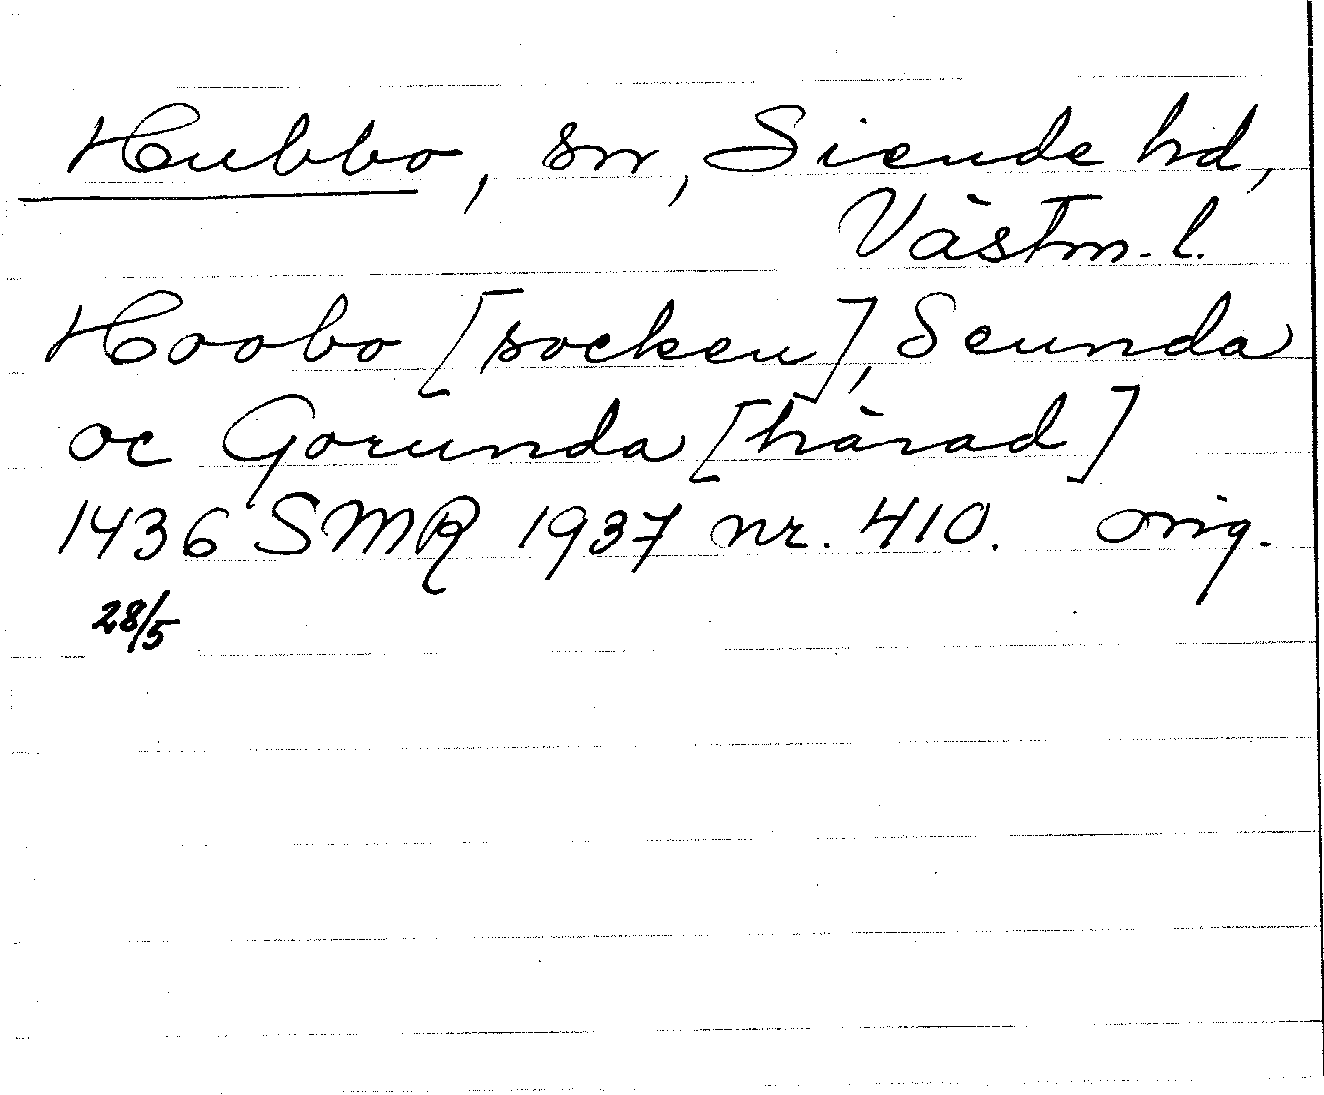 Hubbo, sn, Siende hd,
Västm. l.
Hoobo [socken], Seunda
oc Gorunda [härad]
1436 SMR 1937 nr. 410. orig.
28/5